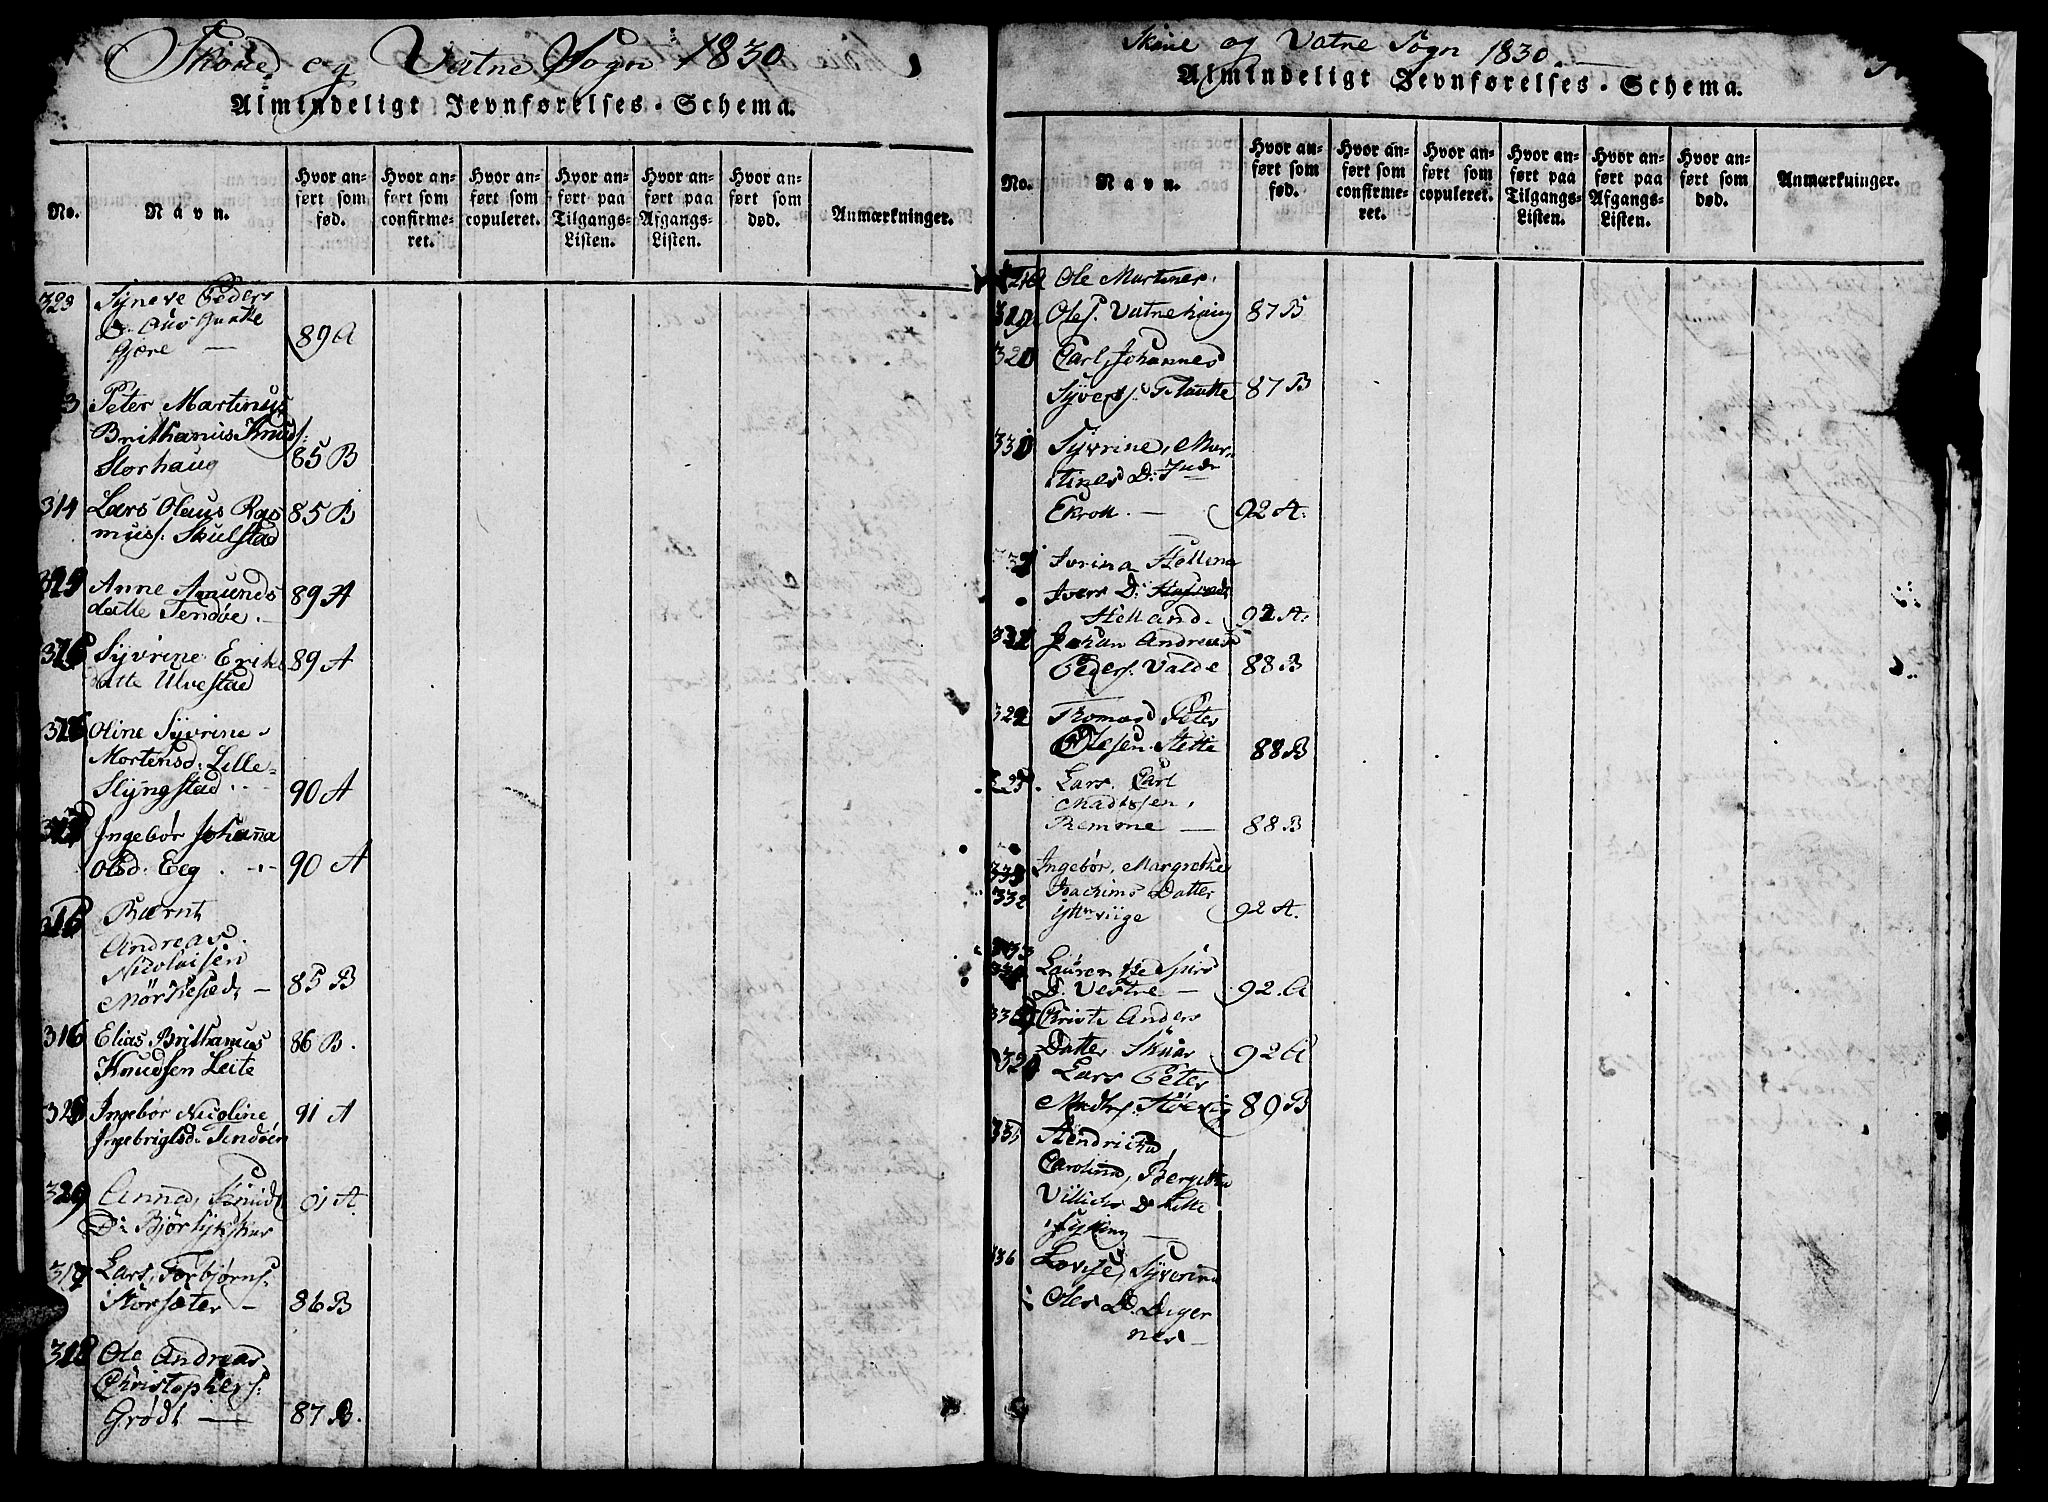 Skoue og Vatne Sogn 1830
Almindeligt Jevnførelses-Schema.
No.
Navn.
Hvor an-
ført som
fød.
Hvor an-
ført som
confirme-
ret.
Hvor an-
ført som
copuleret.
Hvor an-
ført paa
Tilgangs-
Listen.
Hvor an-
ført paa
Afgangs-
Listen.
Hvor an-
ført som
død.
Anmærkninger.
323 Syneve Peders
D.
Gjære — 89 A
Peter Martinus
Brithanius Knuds:
Storhaug 85 B
314 Lars Olaus Ras
muss. Skulstad 85 B
Anne Amunds
datte Tendøe. 89 A
Syvrine Eriks
datte Ulvestad 89 A
Oline Syvrine
Mortensd: Lille-
Slyngstad 90 A
Ingebør Johanna
Olsd. Eeg 90 A
Bærnt
Andreas
Nicolaisen
Mørkesæd — 85 B
316 Elias Brithanius
Knudsen Leite 86 B.
Ingebør Nicoline
Ingebrigtsd: Tendøen 91 A
329 Anna, Knuds
D: Bjørlykshus 91 A
317 Lars, Torbjørns.
Korsæter — 86 B
318 Ole Andreas
Christophers:
Grødt — 87 B.
Skoue og Vatne Sogn 1830.
Almindeligt Jevnførelses-Schema.
No.
Navn.
Hvor an-
ført som
fød.
Hvor an-
ført som
confirme-
ret.
Hvor an-
ført som
copuleret.
Hvor an-
ført paa
Tilgangs-
Listen.
Hvor an-
ført paa
Afgangs-
Listen.
Hvor an-
ført som
død.
Anmærkninger.
Ole Martines
319 Oles. Vatnehaug 87 B
320 Carl Johannes
Syvers. Flautte 87 B
330 Syvrine, Mar-
tines D: Indr
Ekroll. — 92 A.
Ivrina Hellina
Ivers D:
Helland. 92 A.
Johan Andreas
Peders. Valde 88 B
322 Thomas Peter
Olesen Stette 88 B
Lars Carl
Madtssen,
Remme — 88 B
333 Ingebør, Margrethe
332 Joachims Datter
Yttr viige 92 A.
Laurentze Siurs
D. Vestre — 92. A
Christi Anders
Datter Skaar 92 A
324 Lars Peter
Madts. Støvig 89 B
335 Hendricka
Carolina, Bergitha
Villichs D Litte
336 Lovise, Syverina
Oles D. Diger
nes —